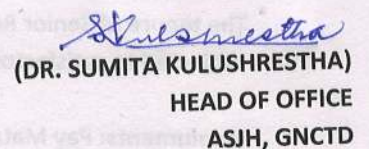 SKulshrestha
(DR. SUMITA KULUSHRESTHA)
HEAD OF OFFICE
ASJH, GNCTD